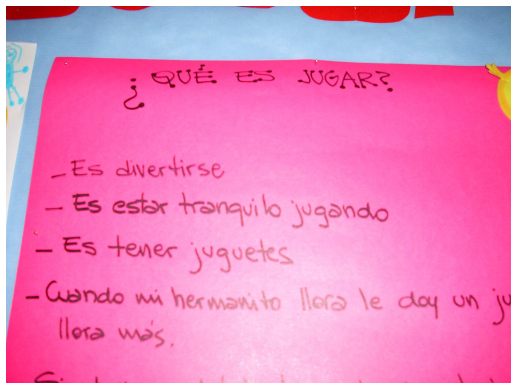 ¿QUÉ ES JUGAR?
- Es divertirse
- Es estar tranquilo jugando
- Es tener juguetes
- Cuando mi hermanito llora le doy un ju
llora más.